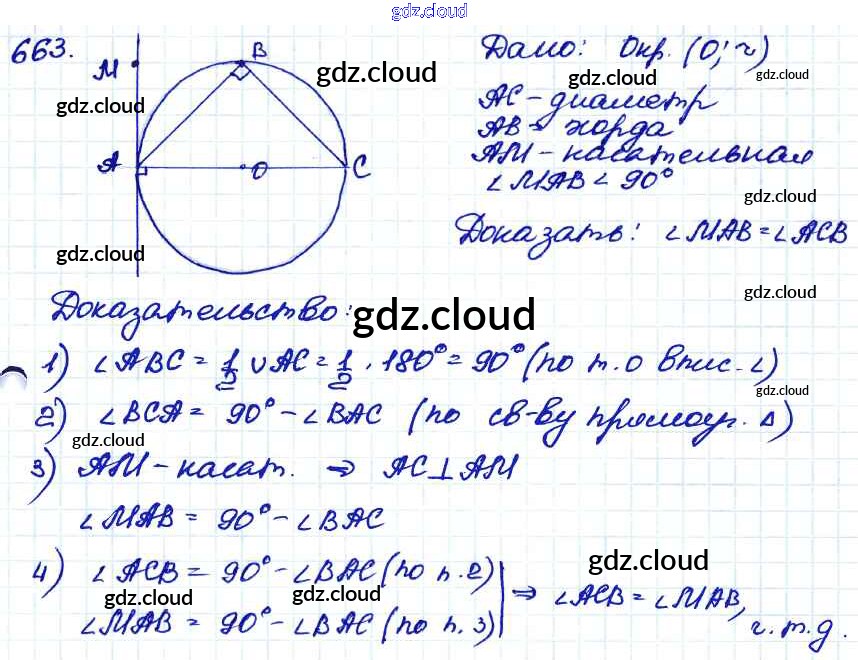 gdz.cloud
663.
M
B
A
O
C
gdz.cloud
gdz.cloud
gdz.cloud
Дано: Окр. (O; r)
gdz.cloud
gdz.cloud
AC - диаметр
AB - хорда
AM - касательная
∠MAB < 90°
gdz.cloud
Доказать: ∠MAB = ∠ACB
gdz.cloud
Доказательство:
gdz.cloud
1) ∠ABC = 1/2 ∪AC = 1/2 · 180° = 90° (по т. о впис. ∠)
gdz.cloud
2) ∠BCA = 90° - ∠BAC (по св-ву прямоуг. Δ)
gdz.cloud
gdz.cloud
3) AM - касат. ⇒ AC ⊥ AM
∠MAB = 90° - ∠BAC
gdz.cloud
4) ∠ACB = 90° - ∠BAC (по п. 2)
gdz.cloud
gdz.cloud
∠MAB = 90° - ∠BAC (по п. 3)
⇒ ∠ACB = ∠MAB,
ч. т. д.
gdz.cloud